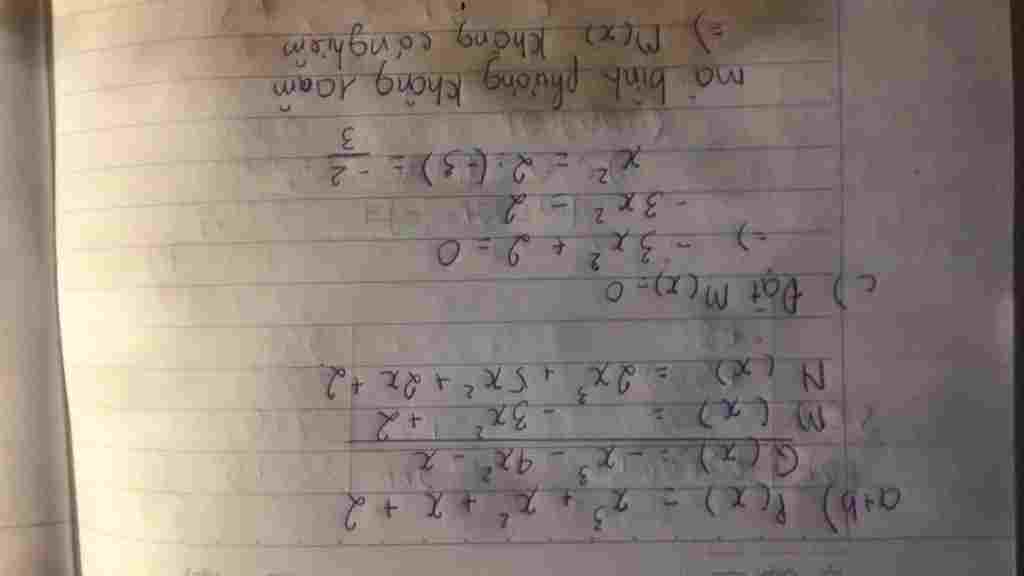 a+b) P(x) = x³ + x² + x + 2
Q(x) = -x³ - 4x² - x
M(x) = -3x² + 2
N(x) = 2x³ + 5x² + 2x + 2
c) Đặt M(x)=0
=) -3x² + 2 = 0
-3x² = 2
x² = 2:(-3) = -2/3
mà bình phương không âm
=) M(x) không có nghiệm